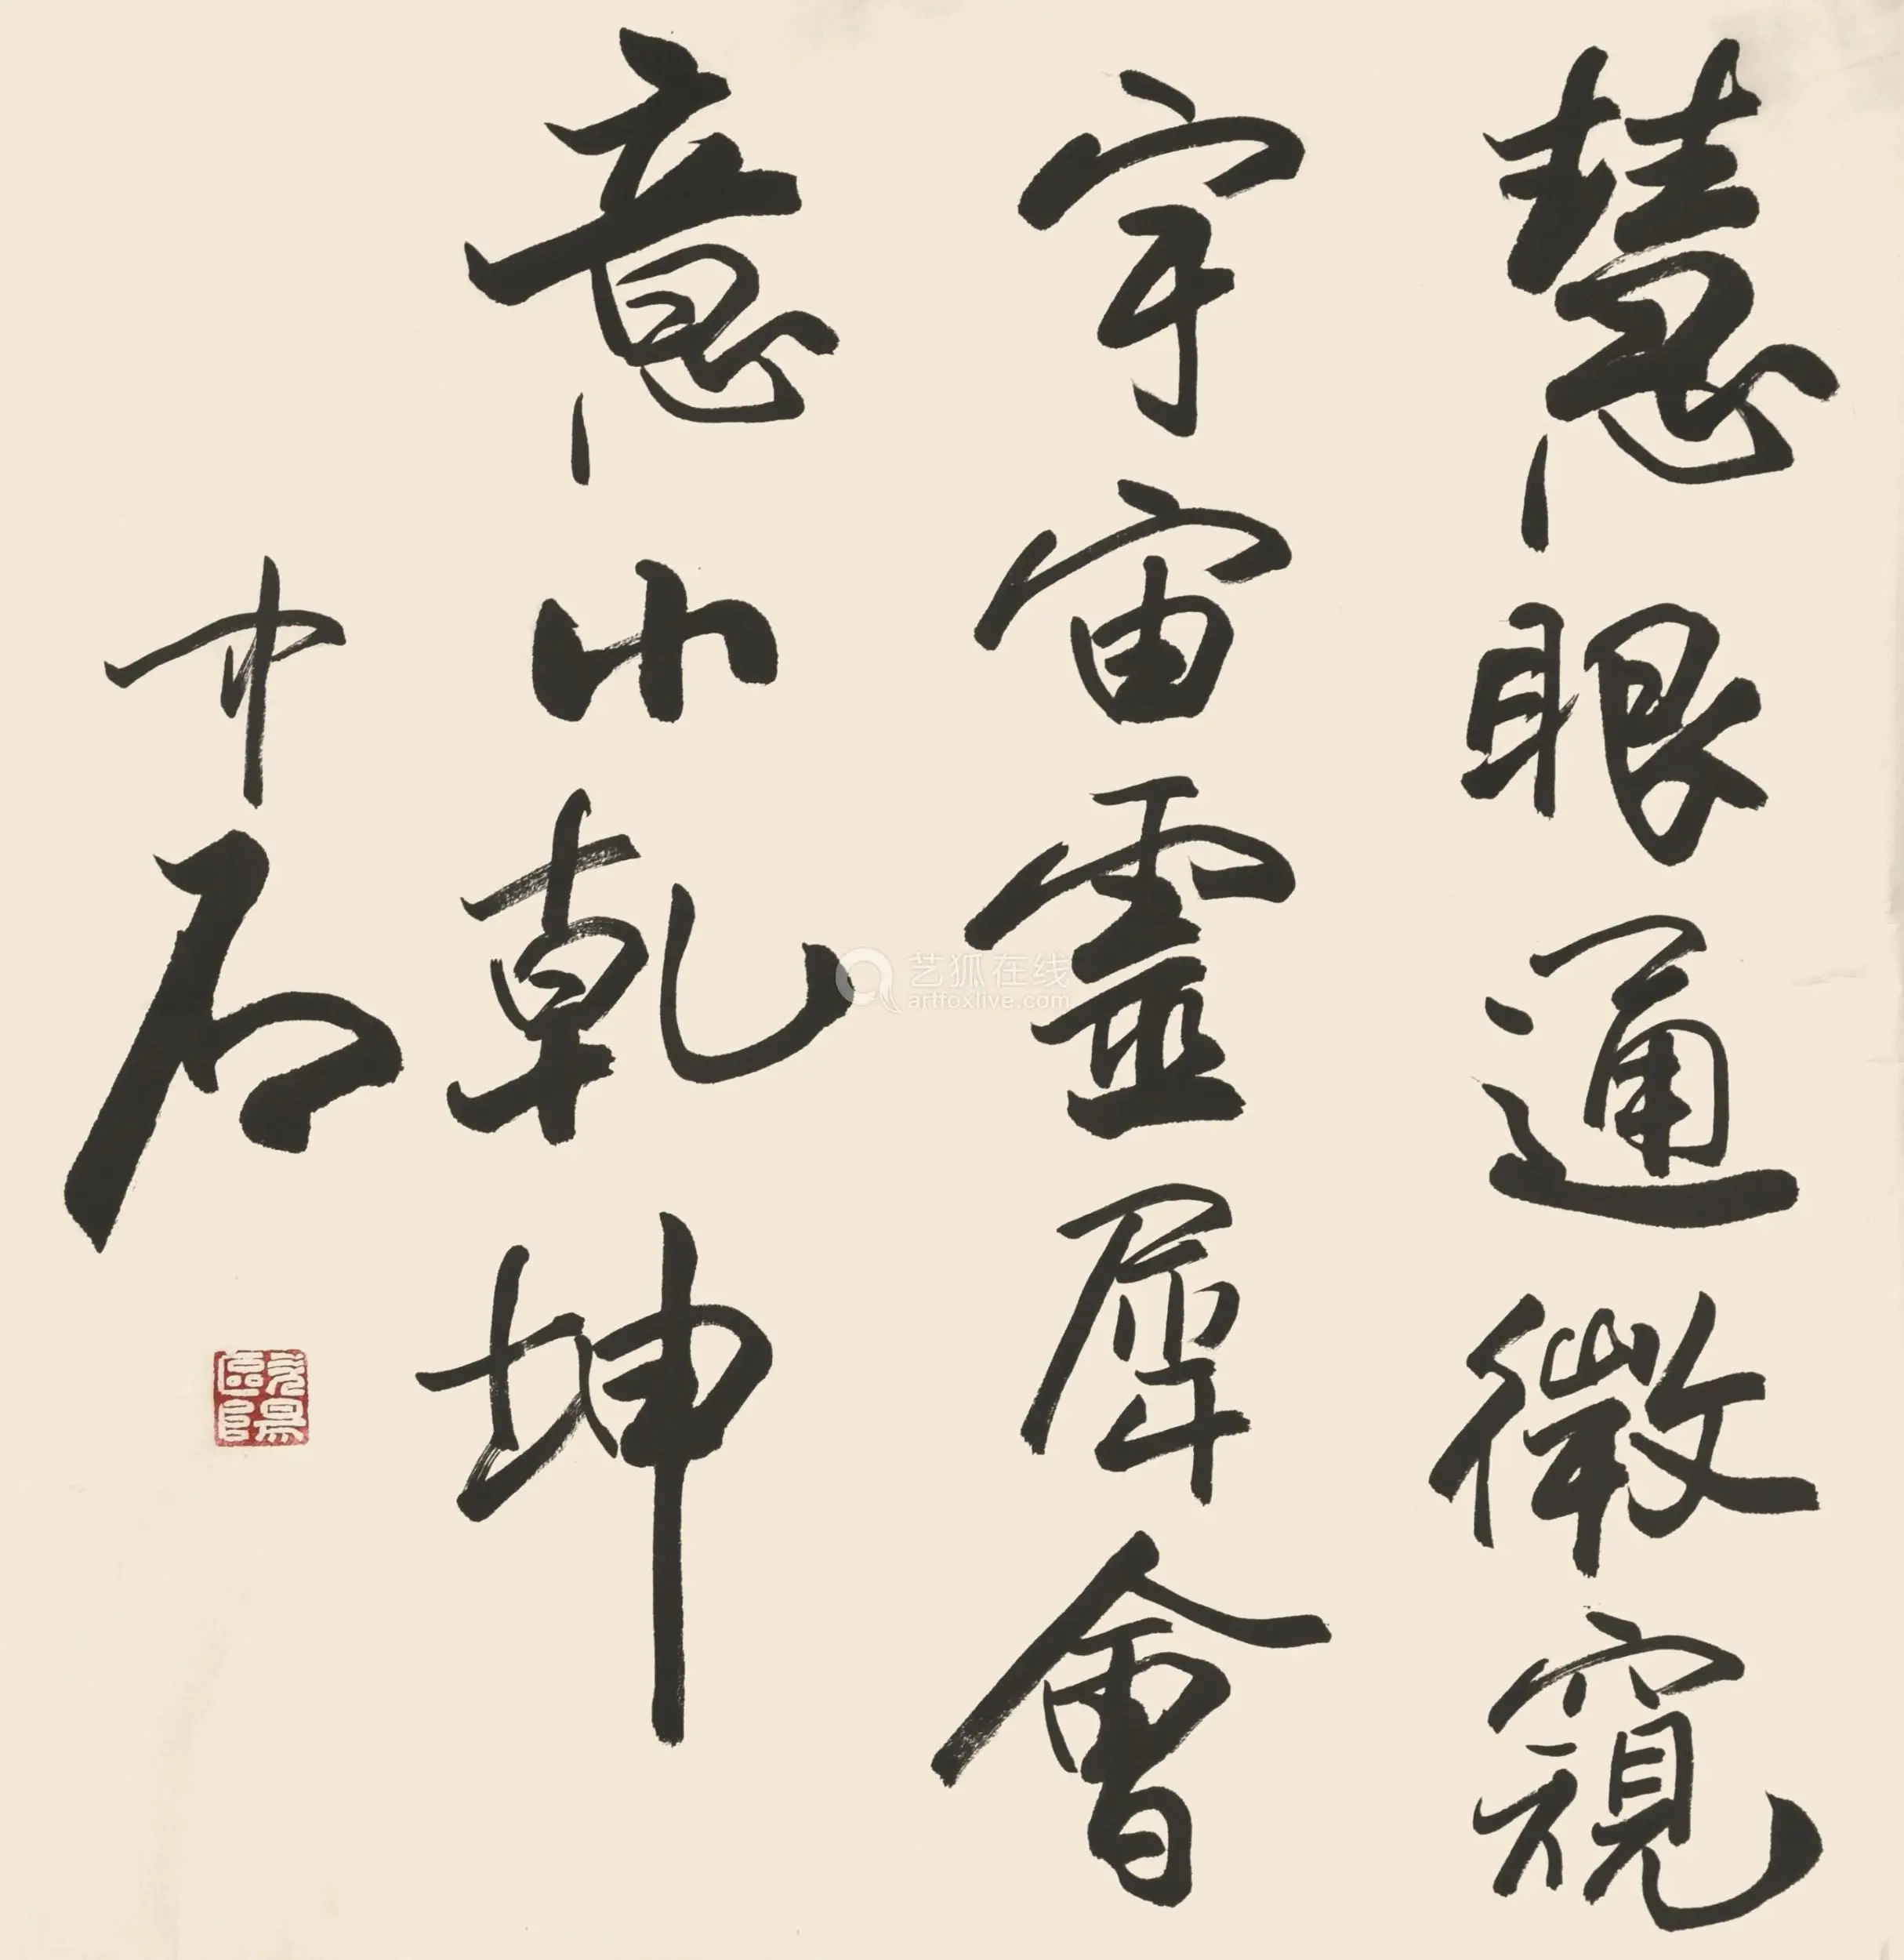 慧眼通微窺
宇宙靈犀會
意小乾坤
中石
歐陽
艺狐在线
artfoxlive.com